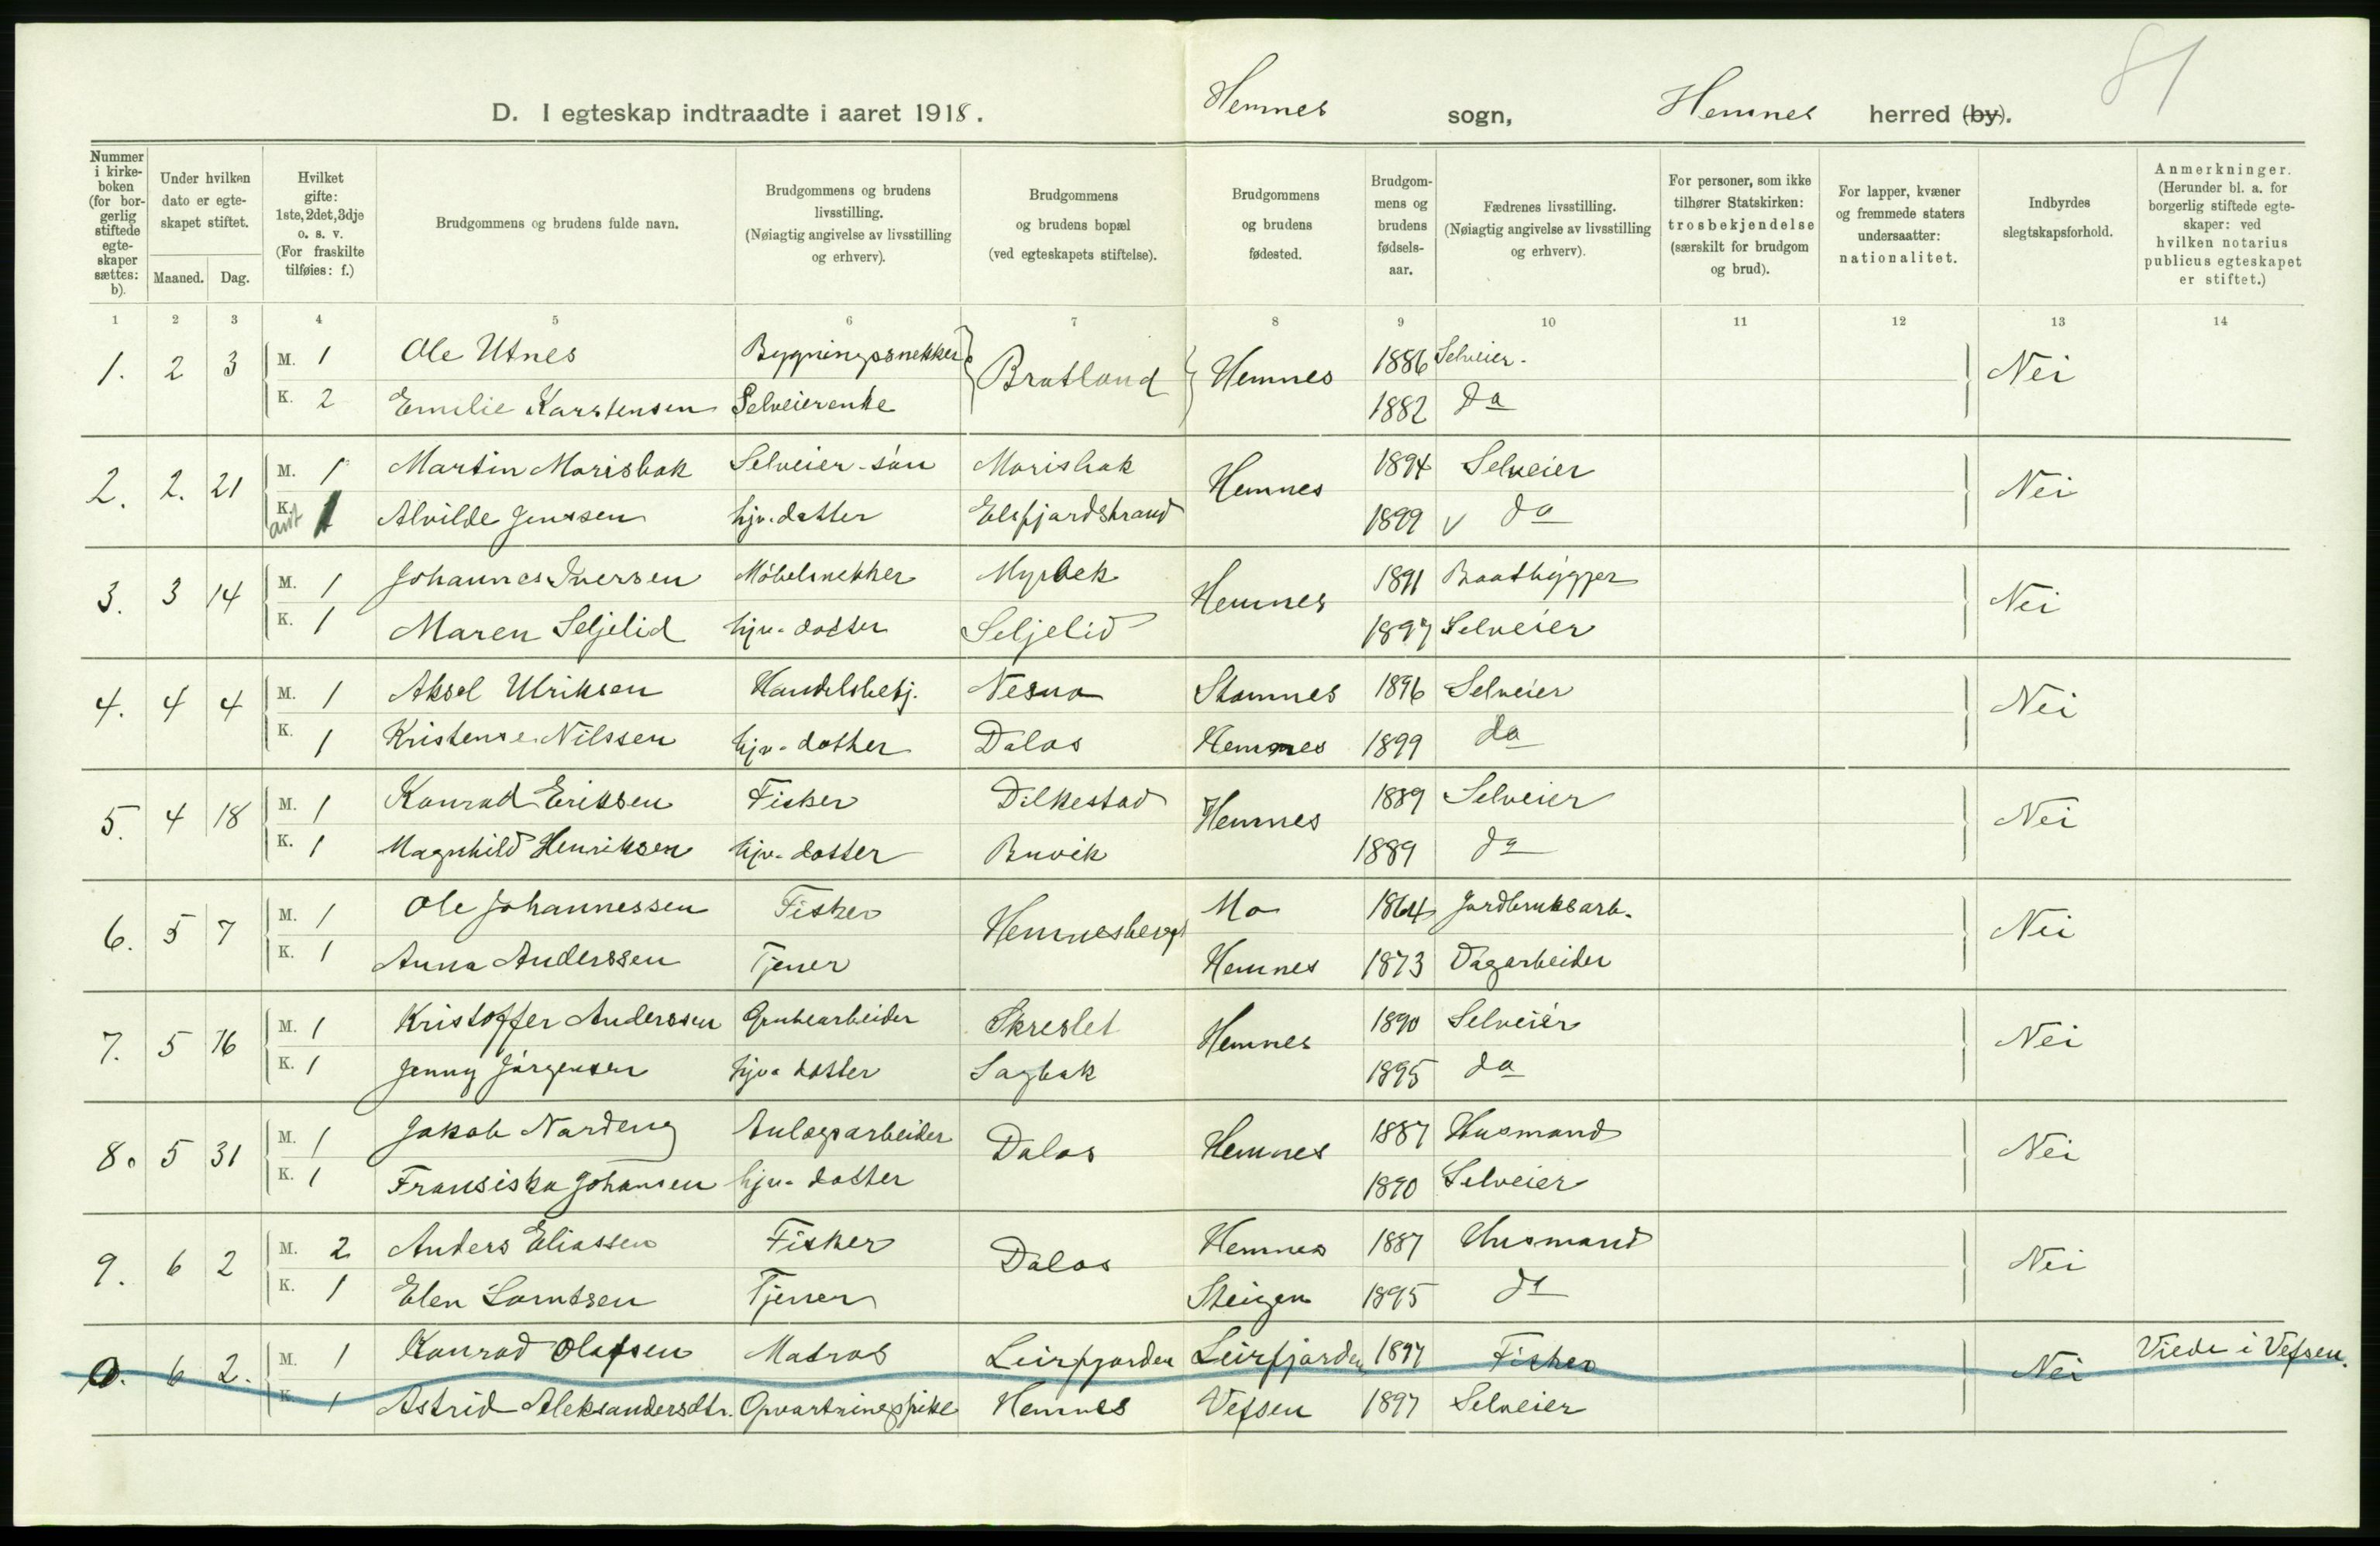 81
D. I egteskap indtraadte i aaret 1918. Hemnes sogn, Hemnes herred (by).
Nummer i kirkeboken (for borgerlig stiftede egteskaper sættes: b).
Under hvilken dato er egteskapet stiftet.
Maaned. Dag.
Hvilket gifte: 1ste, 2det, 3dje o. s. v. (For fraskilte tilføies: f.)
Brudgommens og brudens fulde navn.
Brudgommens og brudens livsstilling. (Nøiagtig angivelse av livsstilling og erhverv).
Brudgommens og brudens bopæl (ved egteskapets stiftelse).
Brudgommens og brudens fødested.
Brudgommens og brudens fødselsaar.
Fædrenes livsstilling. (Nøiagtig angivelse av livsstilling og erhverv).
For personer, som ikke tilhører Statskirken: trosbekjendelse (særskilt for brudgom og brud).
For lapper, kvæner og fremmede staters undersaatter: nationalitet.
Indbyrdes slegtskapsforhold.
Anmerkninger. (Herunder bl. a. for borgerlig stiftede egteskaper: ved hvilken notarius publicus egteskapet er stiftet.)
1 2 3 4 5 6 7 8 9 10 11 12 13 14
1. 2 3 M. 1 Ole Utnes Bygningssnekker Bratland Hemnes 1886 Selveier. Nei
K. 2 Emilie Karstensen Selveierenke 1882 do
2. 2. 21 M. 1 Martin Morisbak Selveier-søn Morisbak Hemnes 1894 Selveier Nei
K. 1 Alvilde Jenssen hjv. datter Elsfjordstrand 1899 v do
3. 3 14 M. 1 Johannes Iversen Møbelsnekker Myrbek Hemnes 1891 Baatbygger Nei
K. 1 Maren Seljelid hjv. datter Seljelid 1897 Selveier
4. 4 4 M. 1 Aksel Ulriksen Handelsbetj. Nesna Stamnes 1896 Selveier Nei
K. 1 Kristense Nilssen hjv. datter Dalos Hemnes 1899 do
5. 4 18 M. 1 Konrad Eriksen Fisker Dilkestad Hemnes 1889 Selveier Nei
K. 1 Magnhild Henriksen hjv. datter Buvik 1889 do
6. 5 7 M. 1 Ole Johannessen Fisker Hemnesberget Mo 1864 Jordbruksarb. Nei
K. 1 Anna Anderssen Tjener Hemnes 1873 Dagarbeider
7. 5 16 M. 1 Kristoffer Anderssen Grubearbeider Skreslet Hemnes 1890 Selveier Nei
K. 1 Jenny Jørgensen hjv. datter Sagbak 1895 do
8. 5 31 M. 1 Jakob Nordeng Anlegsarbeider Dalos Hemnes 1887 Husmand Nei
K. 1 Fransiska Johansen hjv. datter 1890 Selveier
9. 6 2 M. 2 Anders Eliassen Fisker Dalos Hemnes 1887 Husmand Nei
K. 1 Elen Lorntsen Tjener Steigen 1895 do
0. 6 2. M. 1 Konrad Olafsen Matros Leirfjorden Leirfjorden 1897 Fisker Nei Viede i Vefsen.
K. 1 Astrid Aleksandersdtr. Opvartningspike Hemnes Vefsen 1897 Selveier